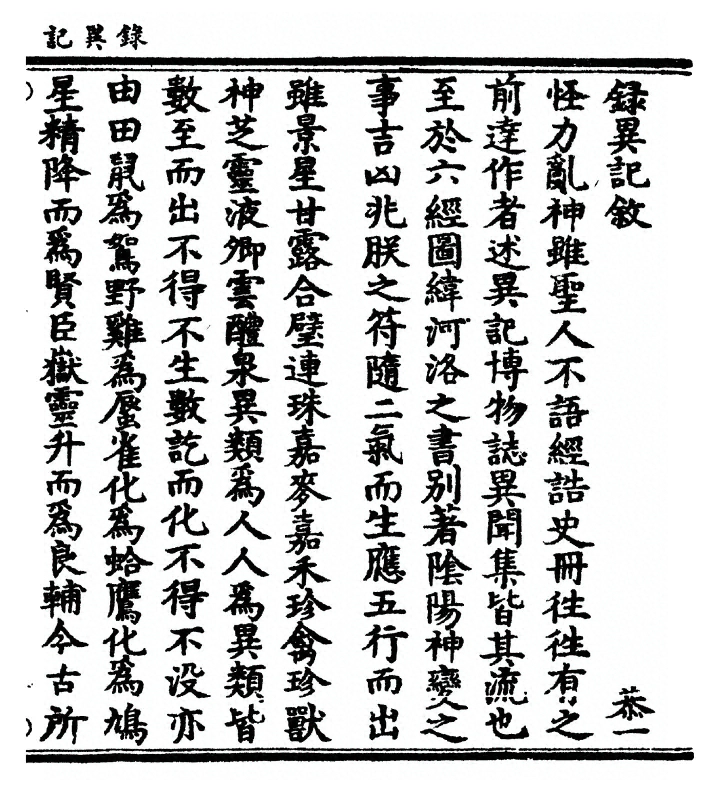 錄異記
録異記敘 恭一
怪力亂神雖聖人不語經誥史冊徃徃有之
前達作者述異記博物誌異聞集皆其流也
至於六經圖緯河洛之書別著陰陽神變之
事吉凶兆朕之符隨二氣而生應五行而出
雖景星甘露合璧連珠嘉麥嘉禾珍禽珍獸
神芝靈液卿雲醴泉異類爲人人爲異類皆
數至而出不得不生數訖而化不得不没亦
由田鼠爲鴽野雞爲蜃雀化爲蛤鷹化爲鳩
星精降而爲賢臣嶽靈升而爲良輔今古所